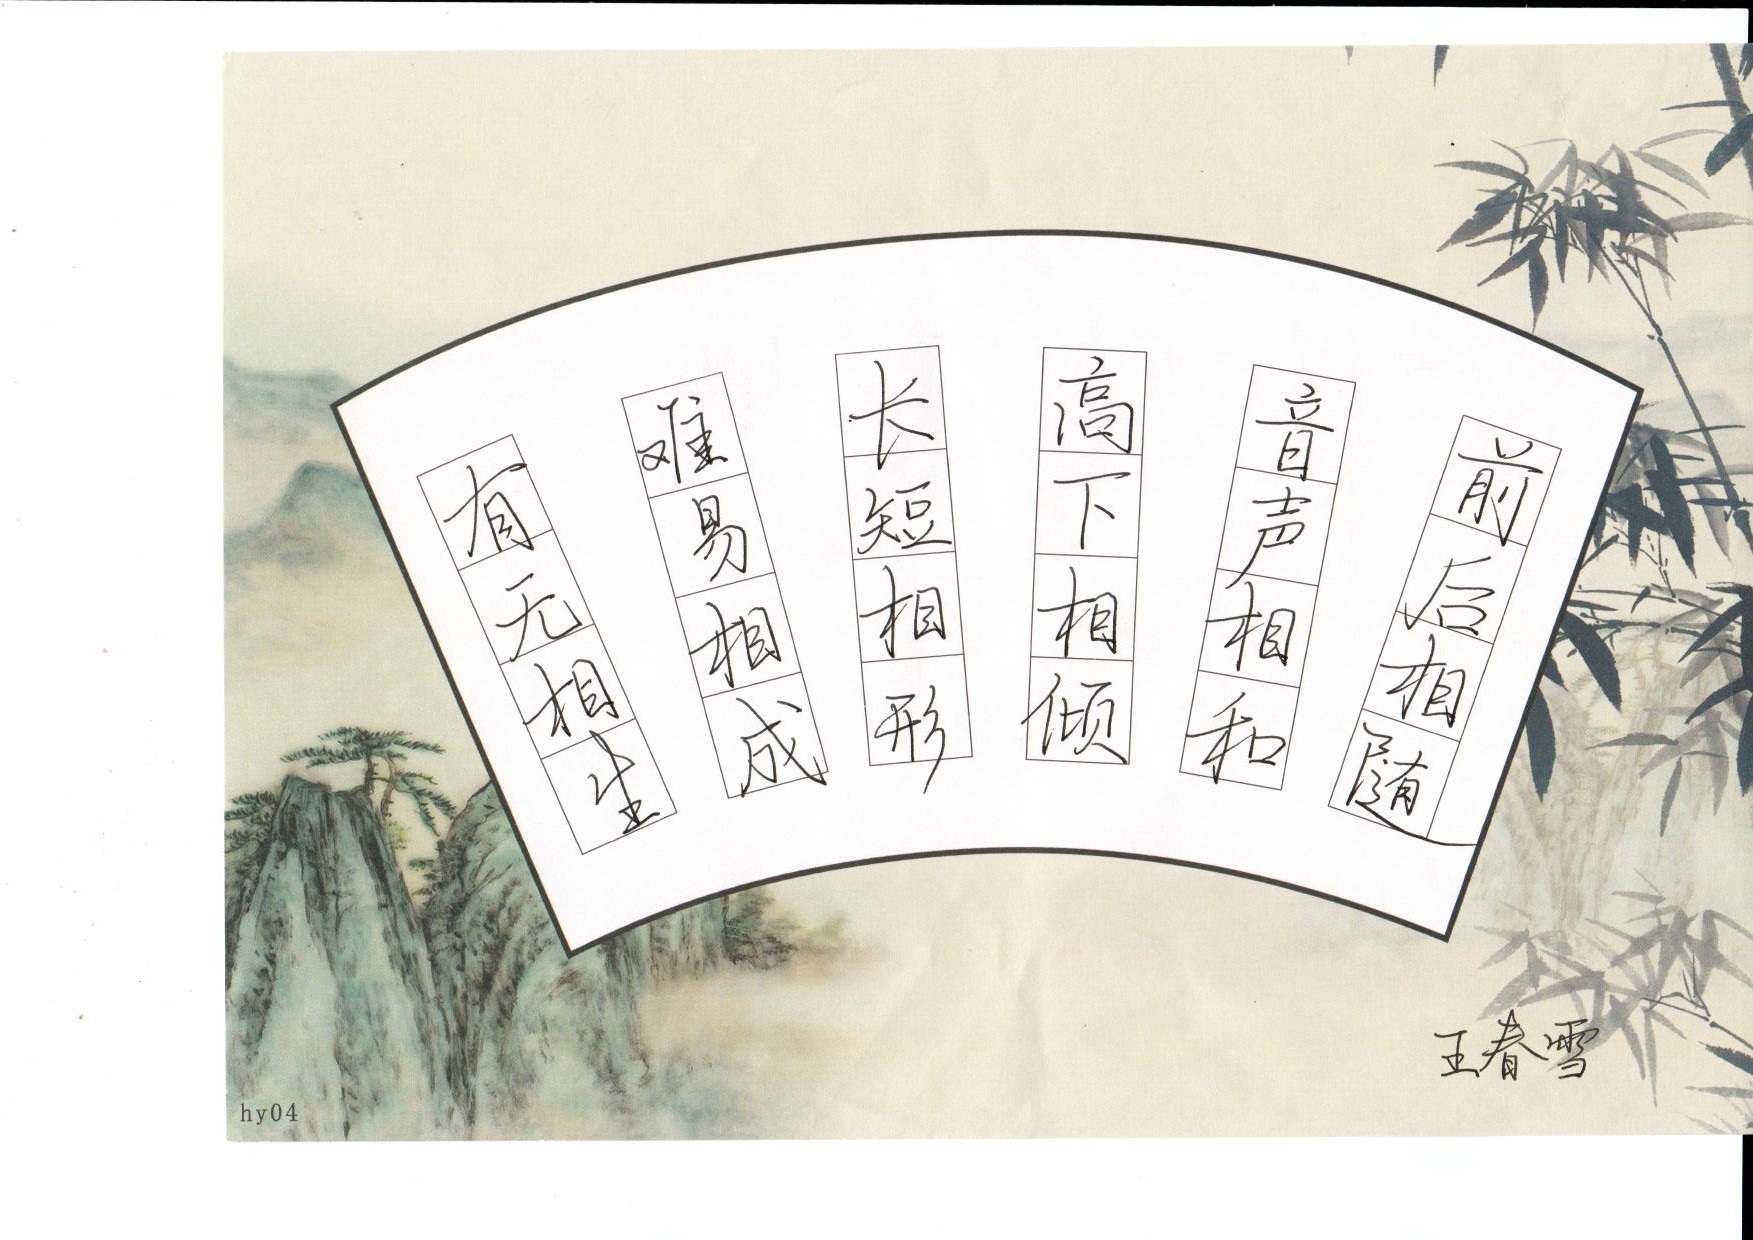 有无相生
难易相成
长短相形
高下相倾
音声相和
前后相随
王春雪
hy04